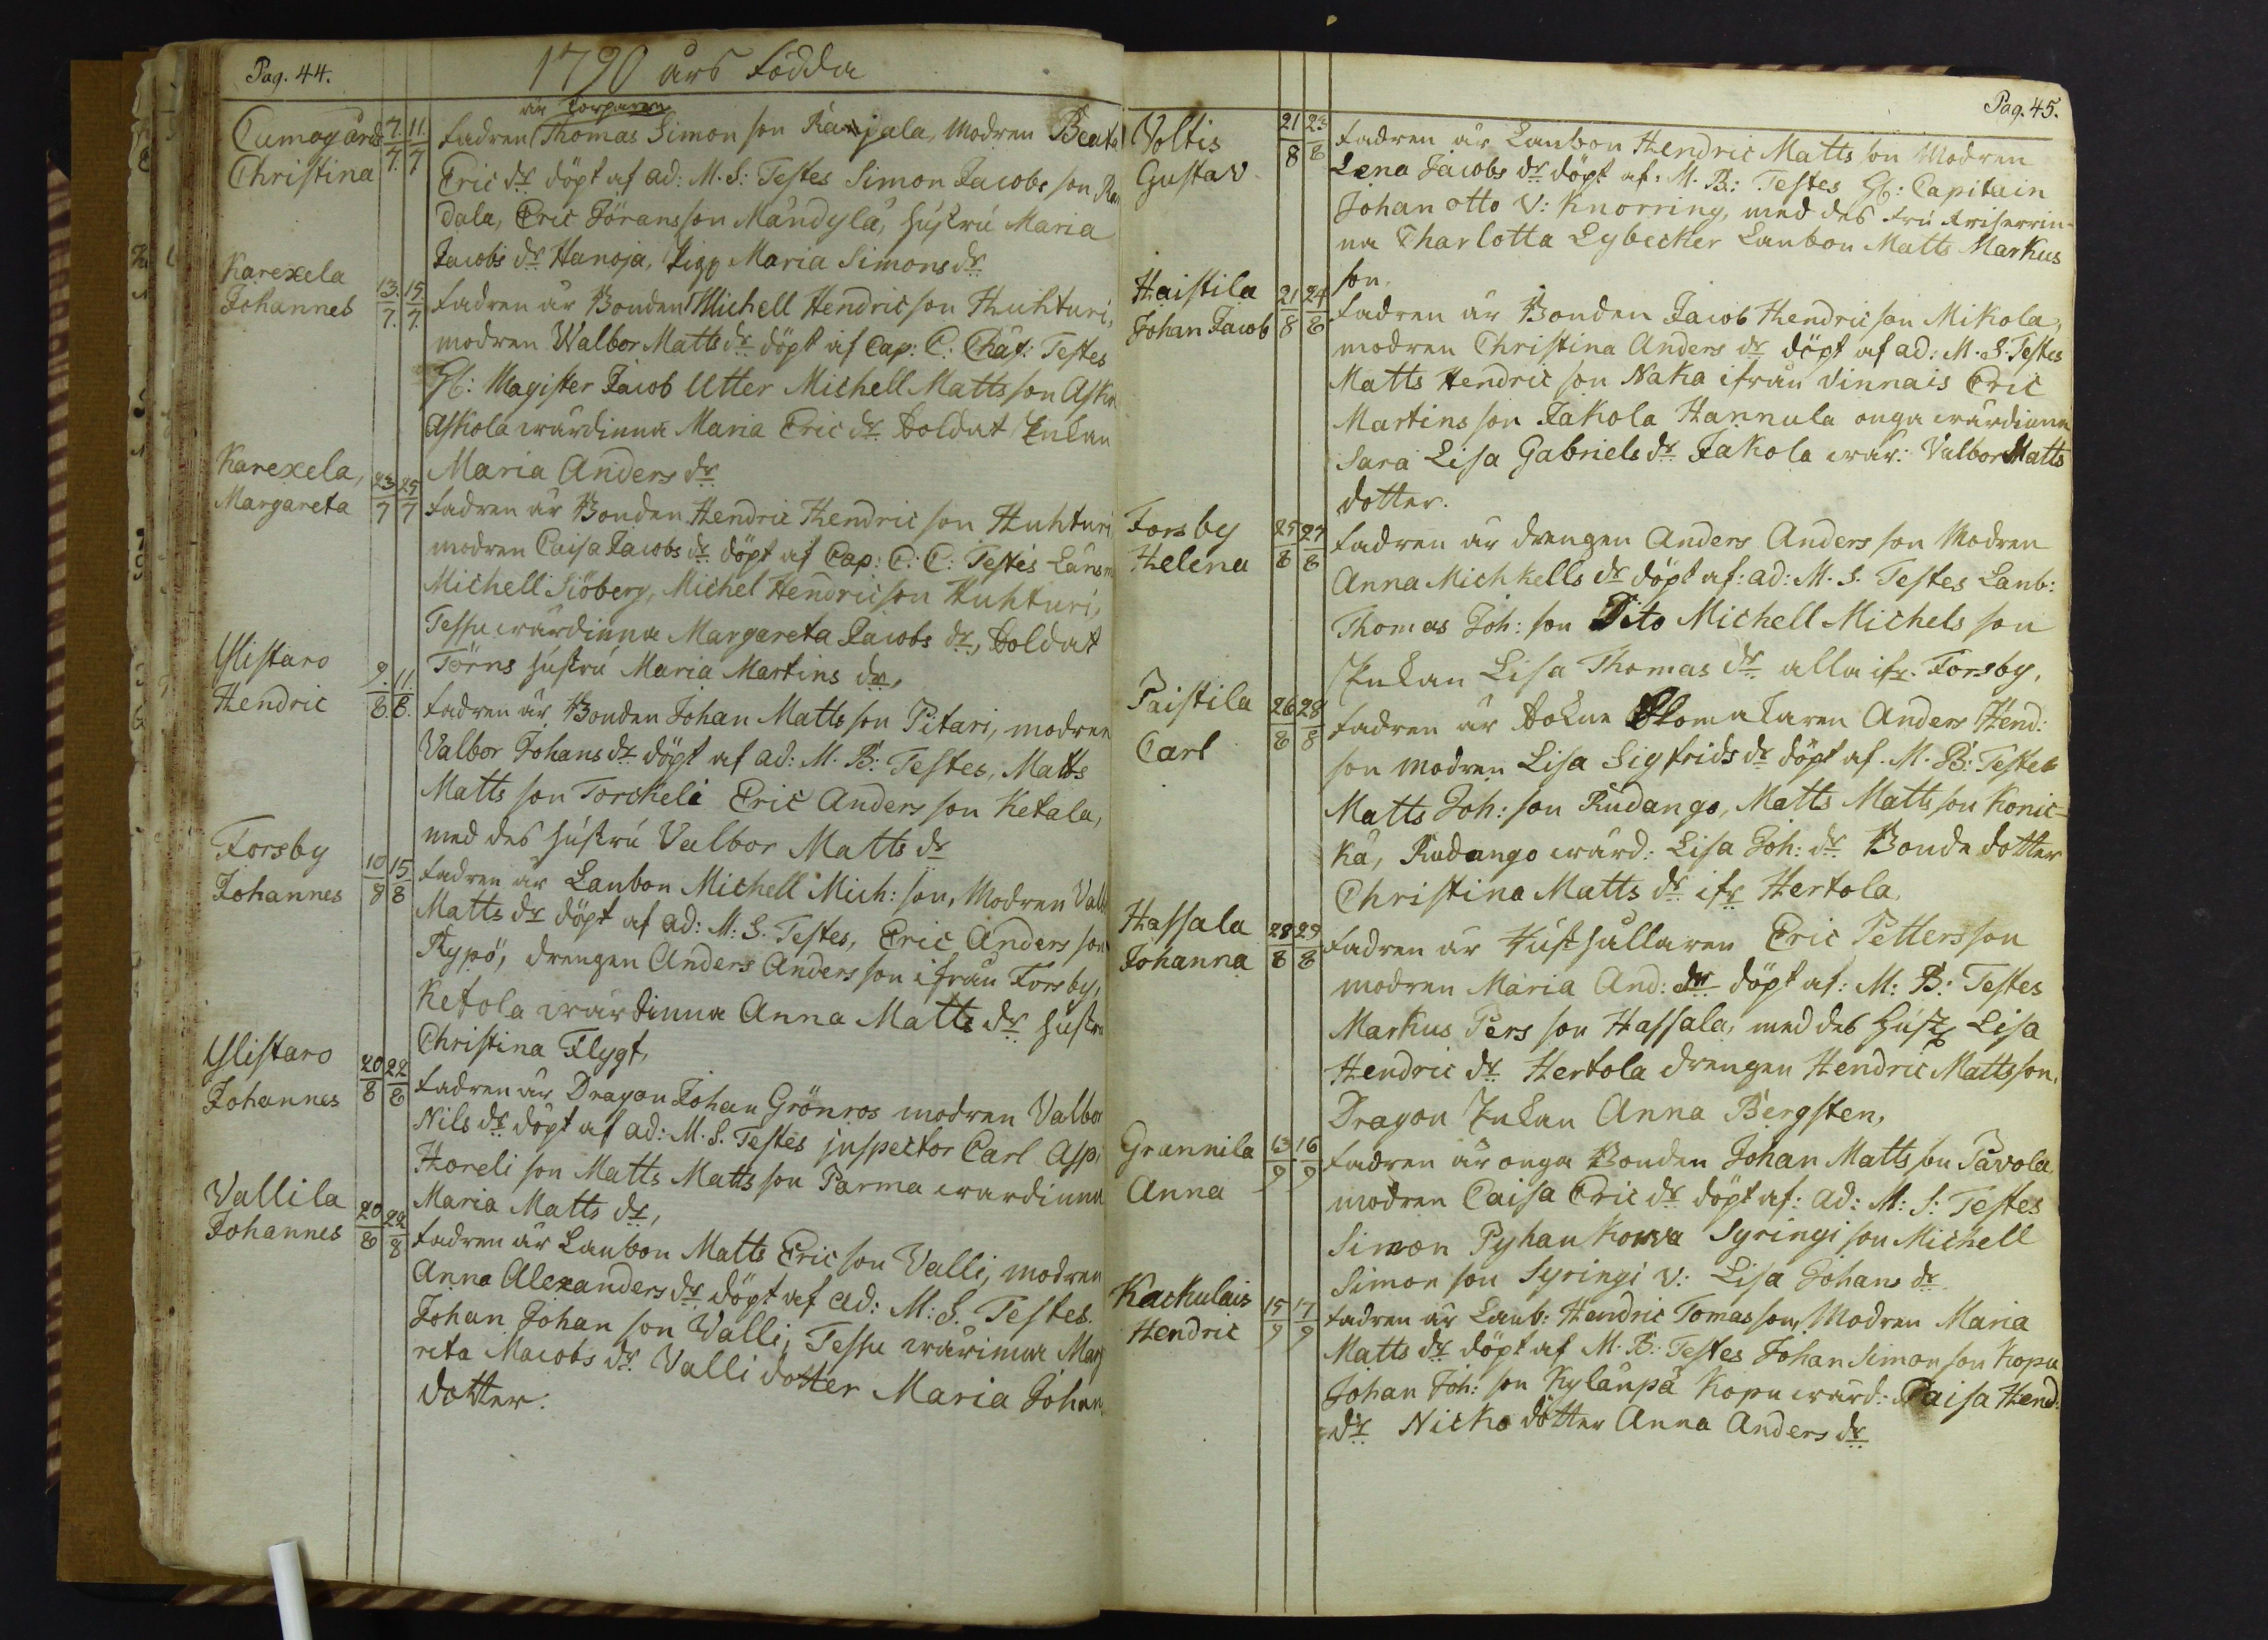 Pag. 44.
1790 års Födda
är torparen
Cumogård 7./7. 11./7 Fadren Thomas Simon son Ranjala, Modren Beata
Christina Eric dr döpt af ad: M. S: Testes Simon Jacobs son Ran
dala, Eric Jöransson Mändylä, hustru Maria
Jacobs dr Hanoja, Pig: Maria Simons dr
Karexela
Johannes 13./7. 15/7. Fadren är Bonden Michell Hendric son Huhturi,
modren Walbor Matts dr döpt af Cap: C: Chät: Testes
H: Magister Jacob Utter Michell Matts son Asko
Askola wärdinna Maria Eric dr Soldat Enkan
Maria Anders dr
Karexela,
Margareta 23/7 25/7 Fadren är Bonden Hendric Hendric son Huhturi
modren Caisa Jacobs dr döpt af Cap: C: C: Testes Länsm
Michell Siöberg, Michel Hendricson Huhturi,
Tessu wärdinna Margareta Jacobs dr, Soldat
Törns hustru Maria Martins dr,
Ylistaro
Hendric 9./8. 11./8. Fadren är Bonden Johan Matts son Pitari, modren
Valbor Johans dr döpt af ad: M. B: Testes, Matts
Matts son Torckeli Eric Anders son Ketala,
med des hustru Valbor Matts dr
Forsby
Johannes 10/8 15/8 Fadren är Lanbon Michell Mich: son, Modren Valb
Matts dr döpt af ad: M: S. Testes, Eric Anders son
Rypö, drengen Anders Anders son ifrån Forsby,
Ketola wärdinna Anna Matts dr hustru
Christina Flygt,
Ylistaro
Johannes 20/8 22/8 Fadren är Dragon Johan Grönros modren Valbor
Nils dr döpt af ad: M. S. Testes jnspector Carl Asp,
Horeli son Matts Matts son Parma wärdinna
Maria Matts dr,
Vallila
Johannes 20/8 22/8 Fadren är Lanbon Matts Eric son Valli, modren
Anna Alexanders dr döpt af ad: M: S. Testes.
Johan Johan son Valli, Tessu wärinna Marg
reta Macobs dr Valli dotter Maria Johan
dotter.
Pag. 45.
Voltis 21/8 23/8 Fadren är Lanbon Hendric Matts son Modren
Gustav Lena Jacobs dr döpt af: M. B: Testes H: Capitain
Johan otto v: Knorring, med des fru friherrin-
na Charlotta Lybecker Lanbon Matts Markus
son,
Haistila
Johan Jacob 21/8 24/8 Fadren är Bonden Jacob Hendric son Mikola,
modren Christina Anders dr döpt af ad: M. S. Testes
Matts Hendric son Naka ifrån vinnais Eric
Martins son Jakola Hannula onga wärdinna
Sara Lisa Gabriels dr Jakola wär: Valbor Matts
dotter.
Forsby 25/8 27/8 Fadren är drengen Anders Anders son Modren
Helena Anna Michkells dr döpt af: ad: M. S. Testes Lanb:
Thomas Joh: son Dito Michell Michels son
Enkan Lisa Thomas dr alla ifr. Forsby,
Paistila 26/8 28/8 Fadren är Sokne Skomakaren Anders Hend:
Carl son modren Lisa Sigfrids dr döpt af. M. B: Testes
Matts Joh: son Rudango, Matts Matts son Konic-
kä, Rudango wärd: Lisa Joh: dr Bonde dotter
Christina Matts dr ifr Hertola,
Hassala 28/8 29/8 Fadren är Husthållaren Eric Petters son
Johanna modren Maria And: dr döpt af: M: B: Testes
Markus Pers son Hassala, med des Hustr Lisa
Hendric dr Hertola drengen Hendric Matts son,
Dragon Enkan Anna Bergsten,
Grannila 13/9 16/9 Fadren är onga Bonden Johan Matts son Pavola
Anna modren Caisa Eric dr döpt af: ad: M: S: Testes
Simon Pyhan Korva Syringi son Michell
Simon son Syringi v: Lisa Johans dr
Kackulais 15/9 17/9 Fadren är Lanb: Hendric Tomas son, Modren Maria
Hendric Matts dr döpt af M. B: Testes Johan Simon son Kopu
Johan Joh: son Kylänpä Kopu wärd: Caisa Hend:
dr Nicko dotter Anna Anders dr